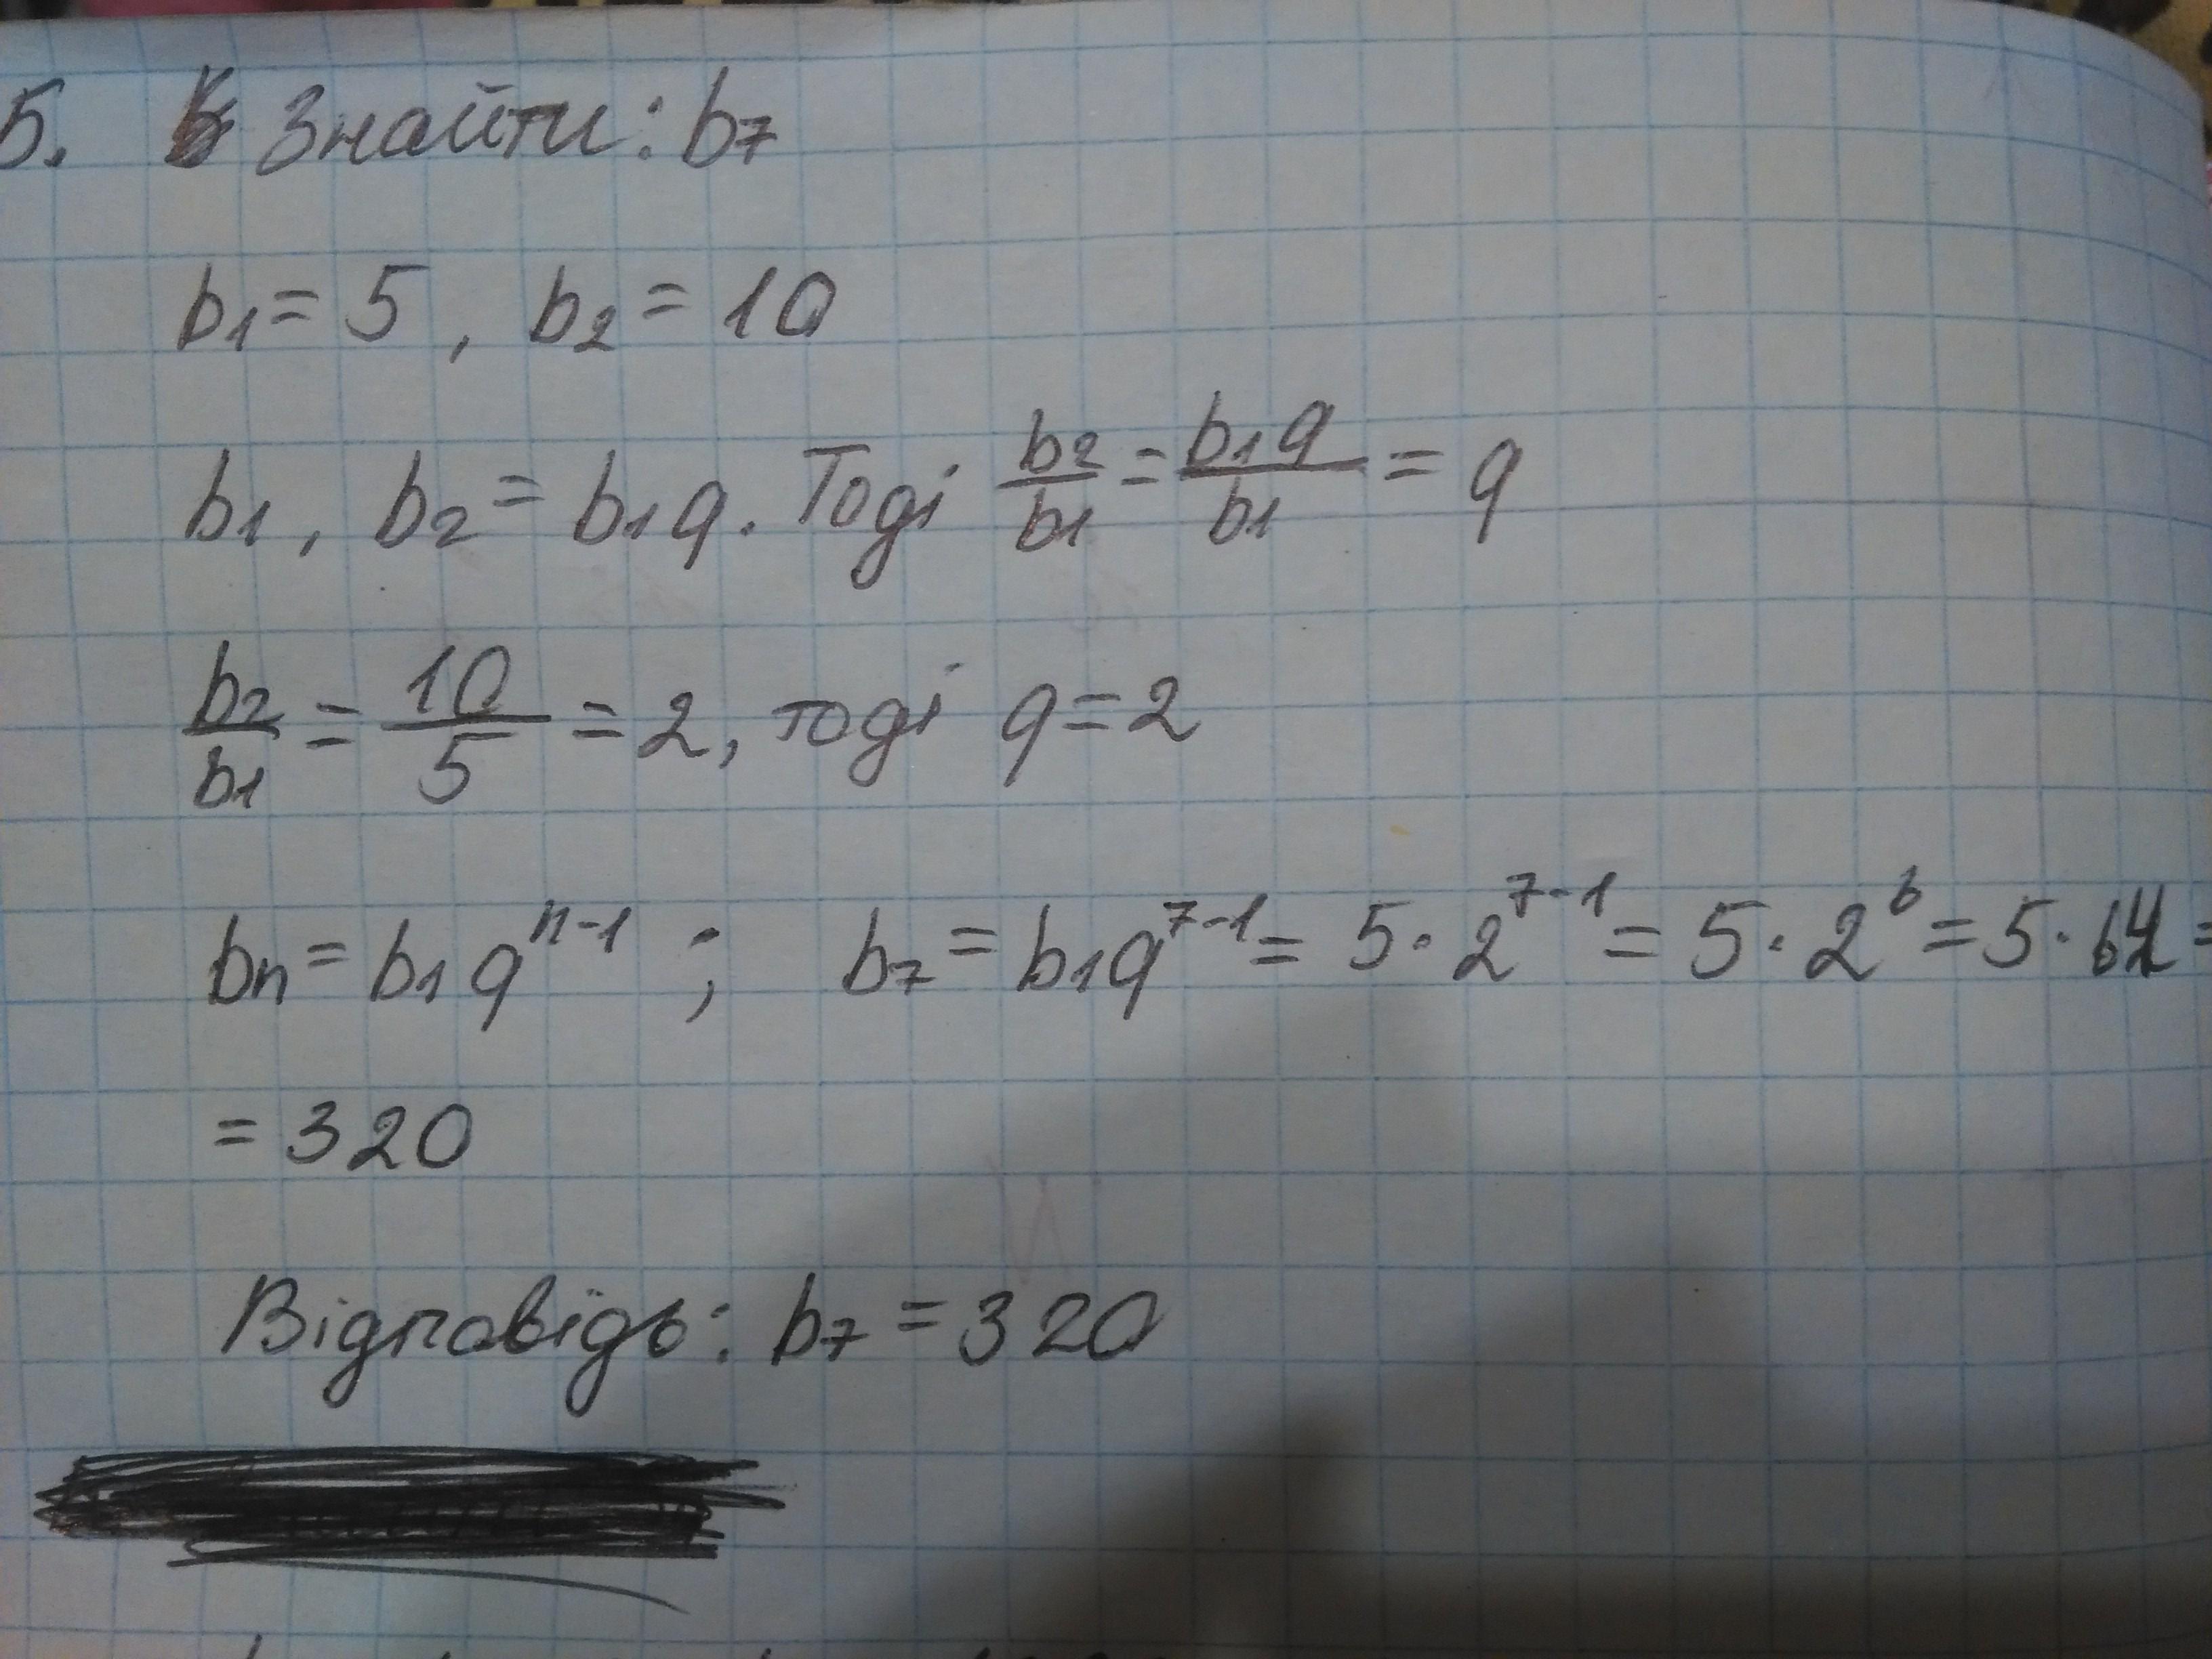 5. Знайти: b₇
b₁ = 5, b₂ = 10
b₁, b₂ = b₁q. Тоді b₂/b₁ = b₁q/b₁ = q
b₂/b₁ = 10/5 = 2, тоді q = 2
bₙ = b₁qⁿ⁻¹ ; b₇ = b₁q⁷⁻¹ = 5 · 2⁷⁻¹ = 5 · 2⁶ = 5 · 64 =
= 320
Відповідь: b₇ = 320